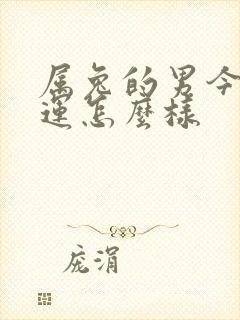 属兔的男今
運怎麼樣
庞涓